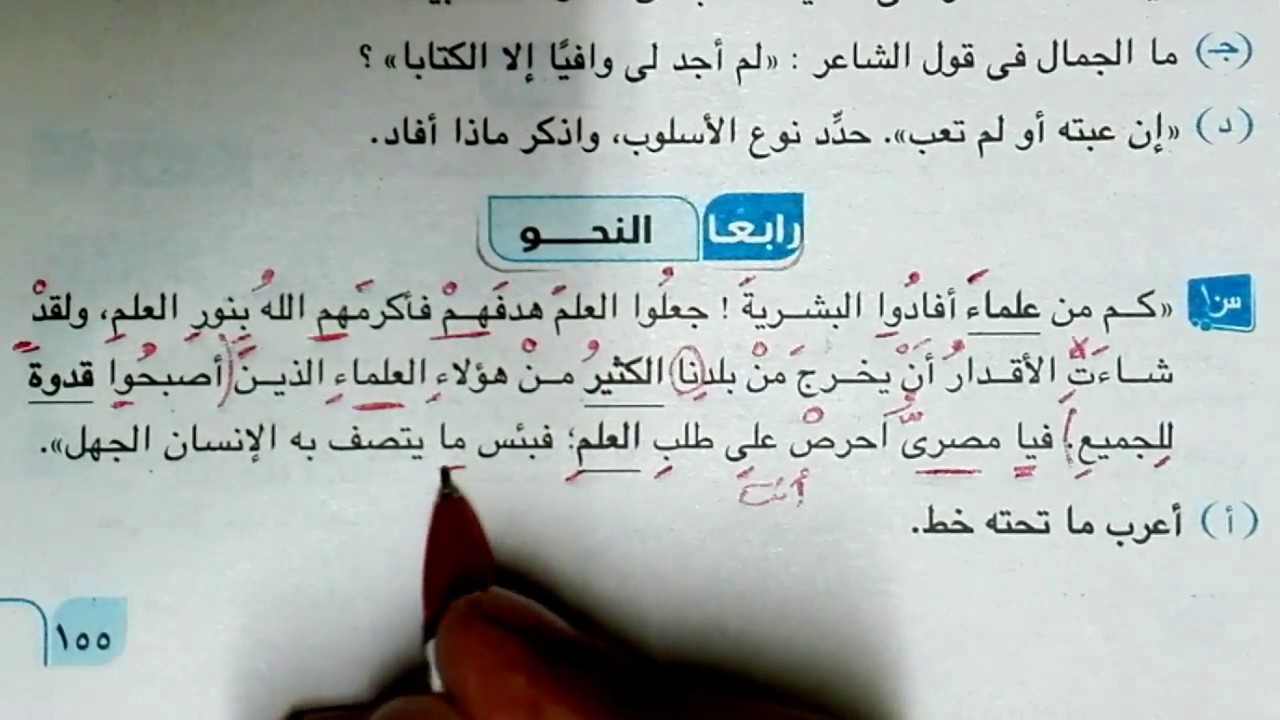 (جـ) ما الجمال فى قول الشاعر : «لم أجد لى وافيًا إلا الكتابا» ؟
(د) «إن عبته أو لم تعب». حدِّد نوع الأسلوب، واذكر ماذا أفاد.
رابعا النحـــو
س١ «كـم من علماءَ أفادُوا البشـريةَ ! جعلُوا العلمَ هدفَهـمْ فأكرمَهم اللهُ بِنورِ العلمِ، ولقدْ
شـاءَتِ الأقـدارُ أنْ يخـرجَ مَنْ بلدِنا الكثيرُ مـنْ هؤلاءِ العلماءِ الذيـنَ أصبحُوا قدوةً
لِلجميعِ. فيا مصرىُّ احرصْ على طلبِ العلمِ؛ فبئس ما يتصف به الإنسان الجهل».
أنت
(أ) أعرب ما تحته خط.
١٥٥